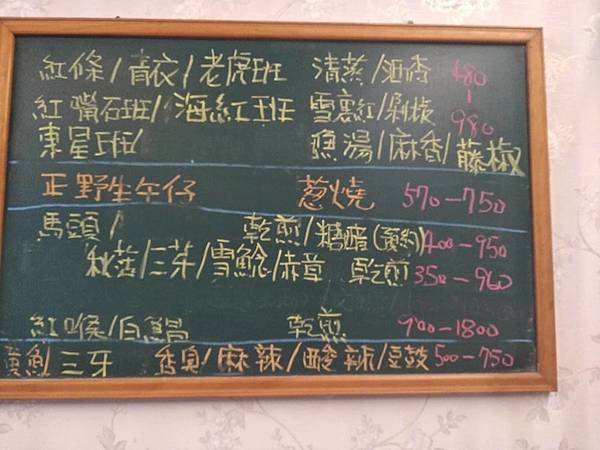 紅條/青衣/老虎斑 清蒸/酒香 480
紅嘴石斑/海紅斑 雪裏紅/剁椒 | 980
東星斑/ 魚湯/麻香/藤椒
正野生午仔 蔥燒 570-750
馬頭/ 乾煎/糖醋(預約) 400-950
秋菇/三茅/雪鯰/赤章 乾煎 350-960
紅喉/白鯧 乾煎 900-1800
黃魚/三牙 香臭/麻辣/酸辣/豆鼓 500-750